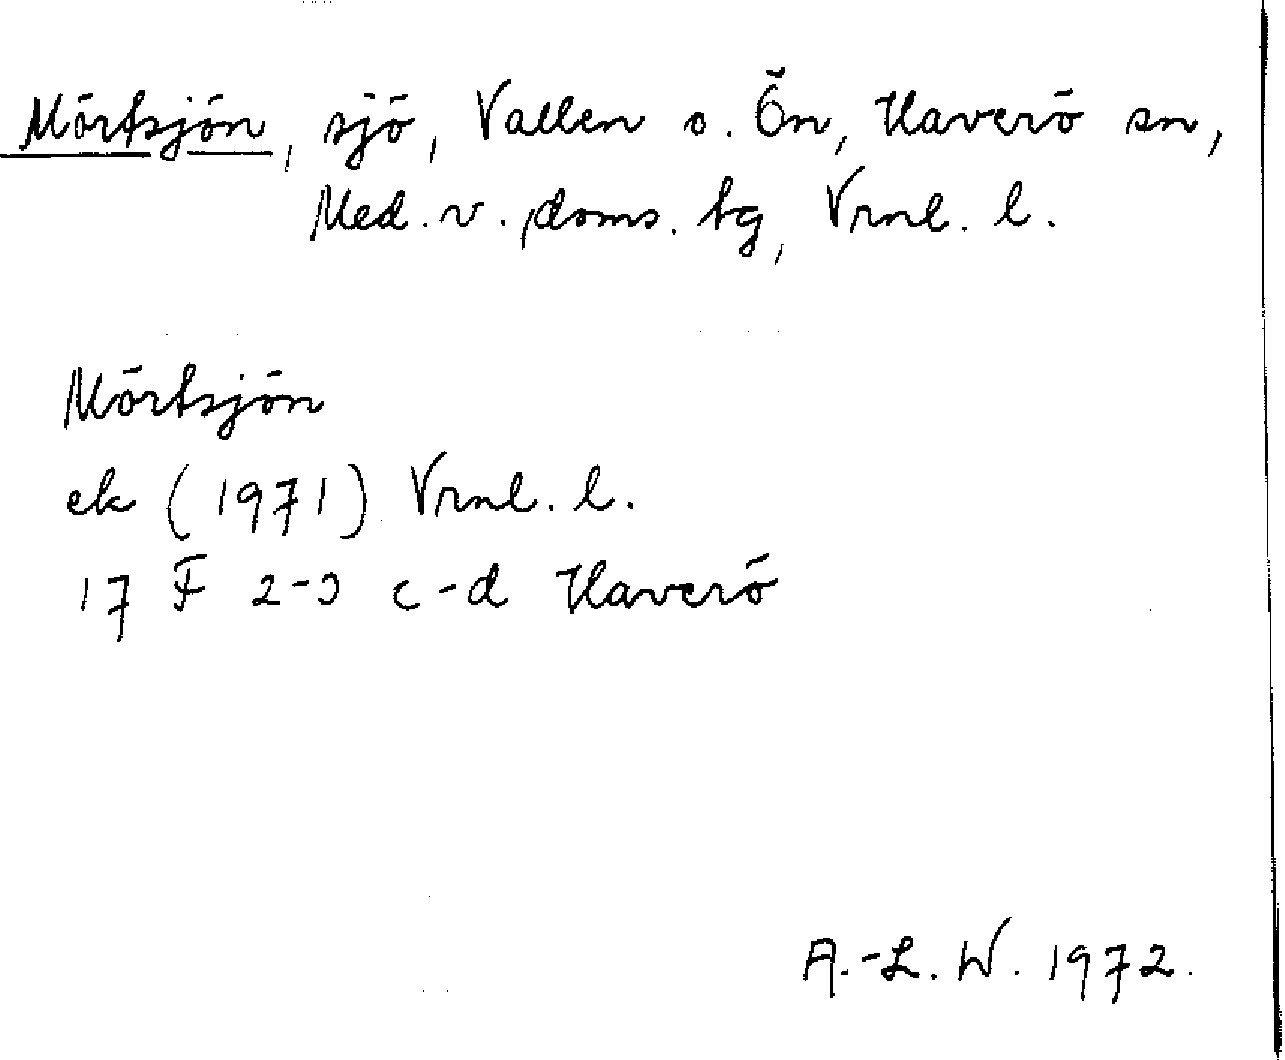 Mörtsjön, sjö, Vallen o. Ön, Haverö sn,
Med. v. doms. tg, Vrnl. l.
Mörtsjön
ek (1971) Vrnl. l.
17 F 2-3 c-d Haverö
A.-L. W. 1972.